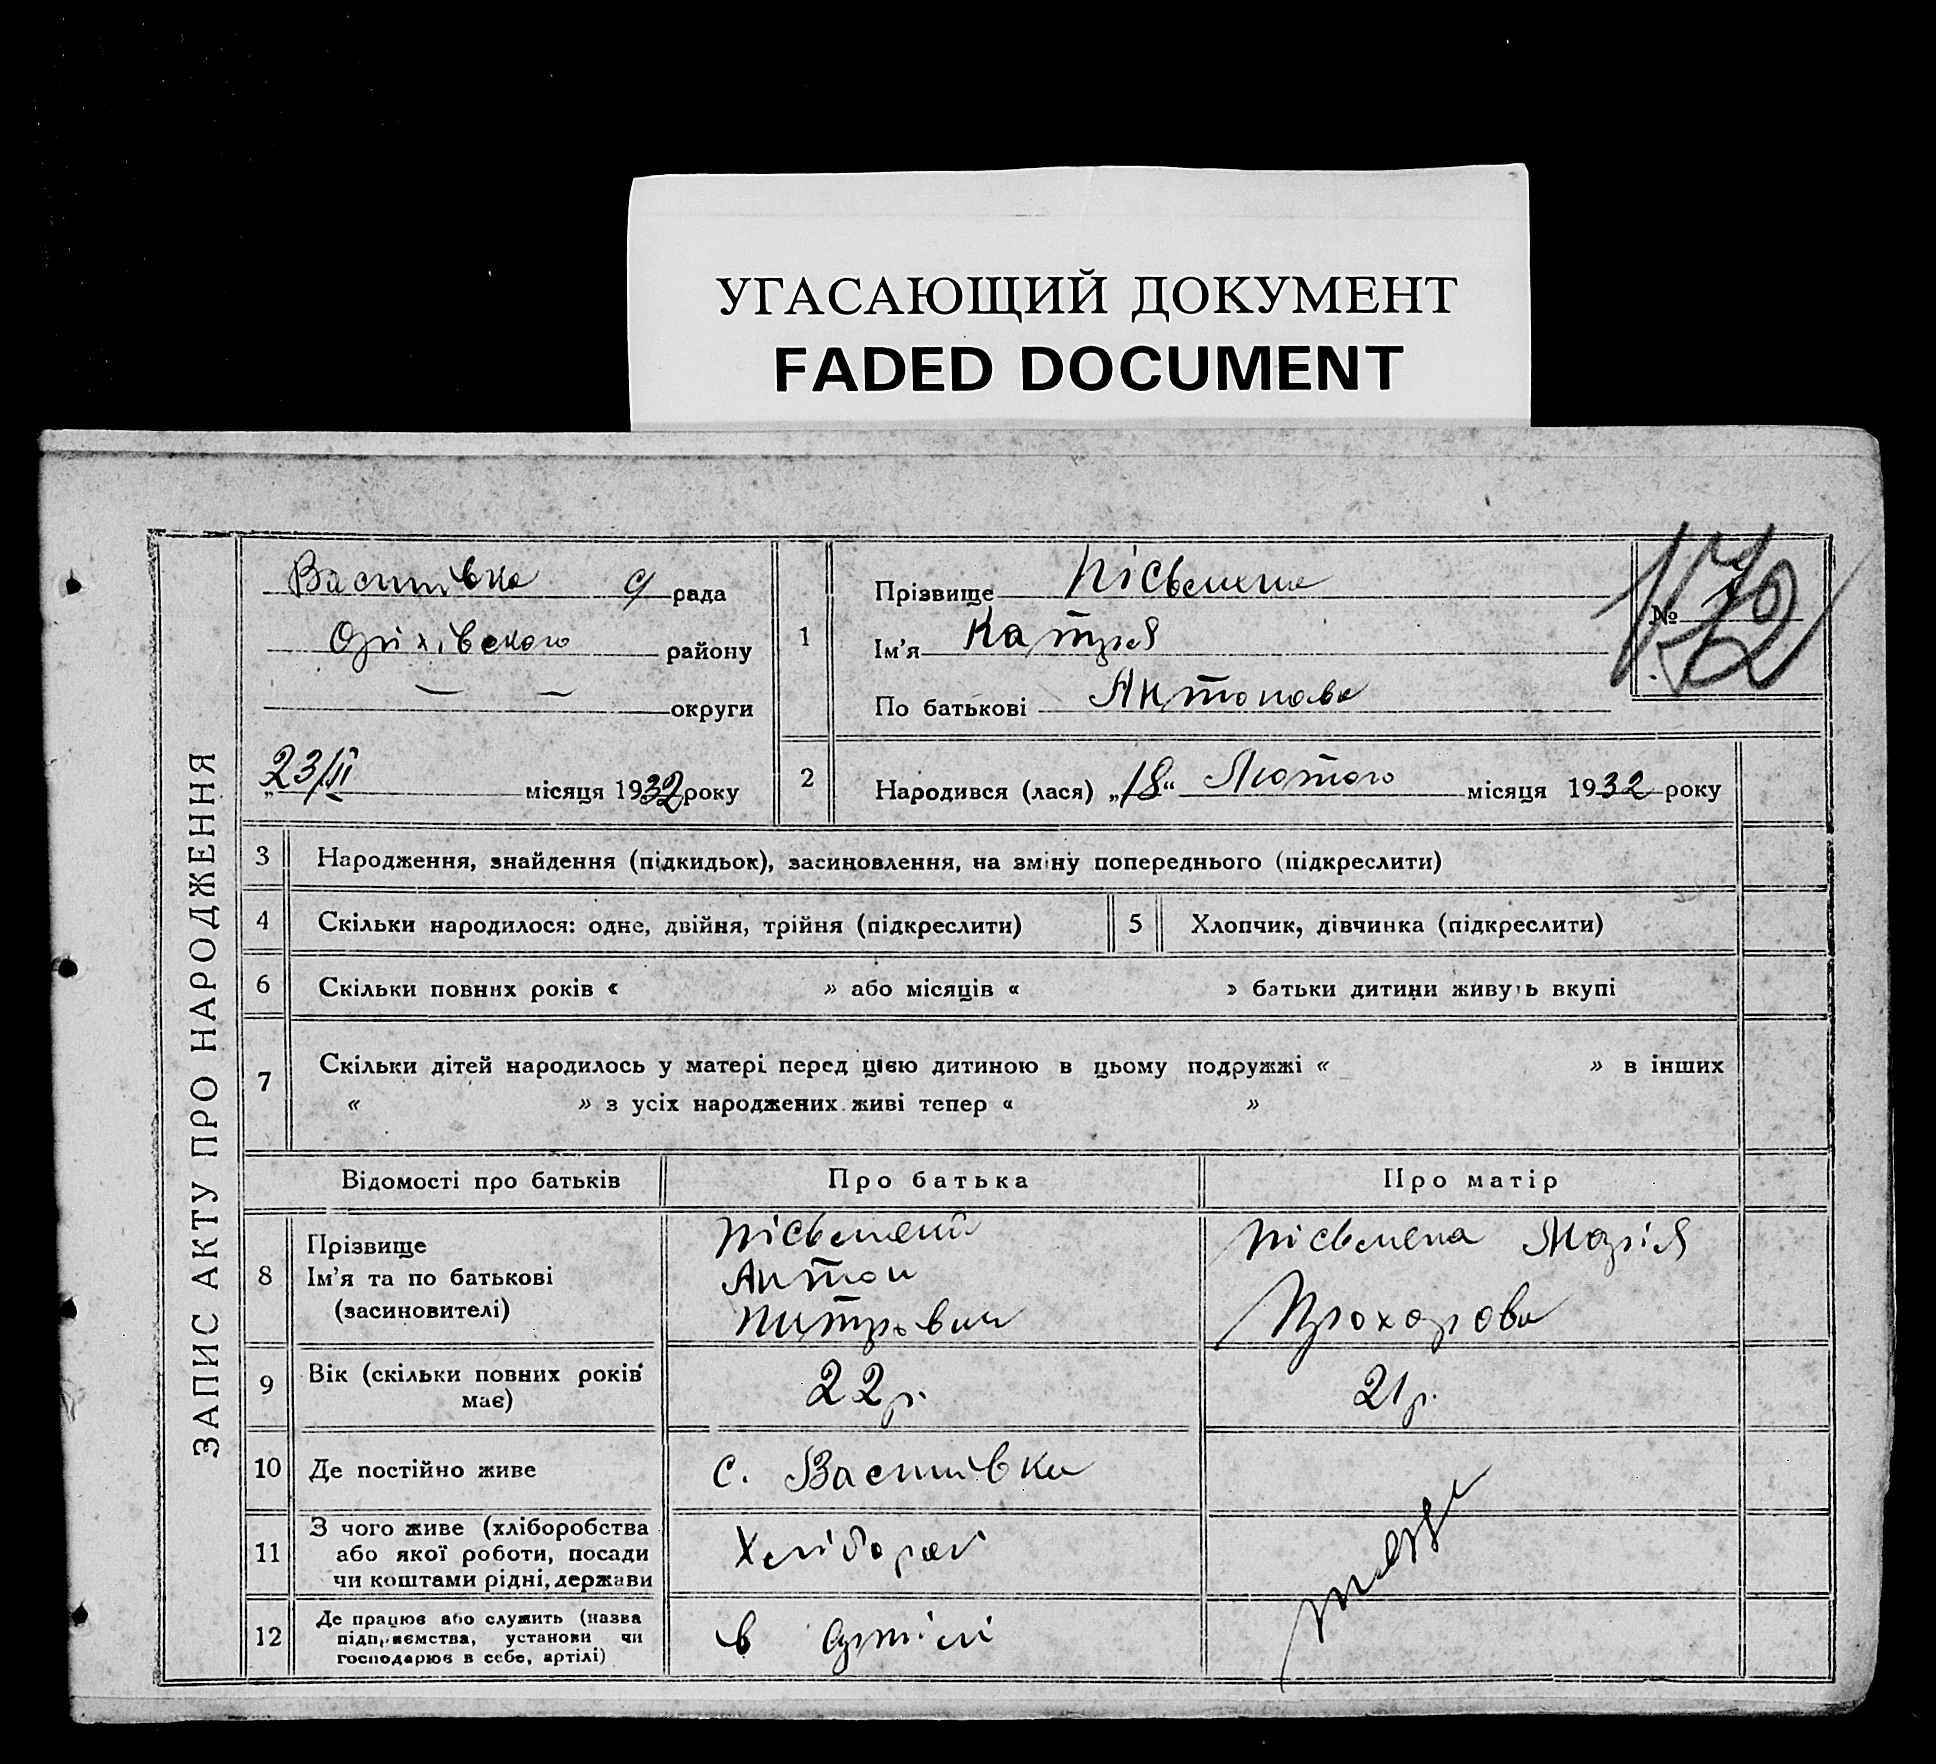 УГАСАЮЩИЙ ДОКУМЕНТ
FADED DOCUMENT
ЗАПИС АКТУ ПРО НАРОДЖЕННЯ
Василівка с/ рада
Оріхівского району
— — округи
„23/II місяця 1932 року
1
Прізвище Пісьмена
Ім'я Катря
По батькові Антонова
№
172
2
Народився (лася) „18“ Лютого місяця 1932 року
3 Народження, знайдення (підкидьок), засиновлення, на зміну попереднього (підкреслити)
4 Скільки народилося: одне, двійня, трійня (підкреслити) 5 Хлопчик, дівчинка (підкреслити)
6 Скільки повних років « » або місяців « » батьки дитини живуть вкупі
7 Скільки дітей народилось у матері перед цією дитиною в цьому подружжі « » в інших
« » з усіх народжених живі тепер « »
Відомості про батьків Про батька Про матір
8 Прізвище Ім'я та по батькові (засиновителі)
Пісьмений Антон Питрович
Пісьмена Марія Прохорова
9 Вік (скільки повних років має) 22 р. 21 р.
10 Де постійно живе с. Василівка
11 З чого живе (хліборобства або якої роботи, посади чи коштами рідні, держави Хлібороб
12 Де працює або служить (назва підприємства, установи чи господарює в себе, артілі) в артілі